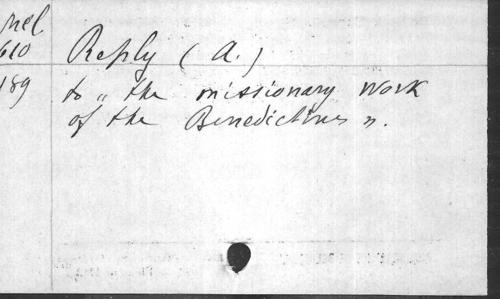 Mel
610 Reply (A.)
189 to „ the missionary work
of the Benedictines ".